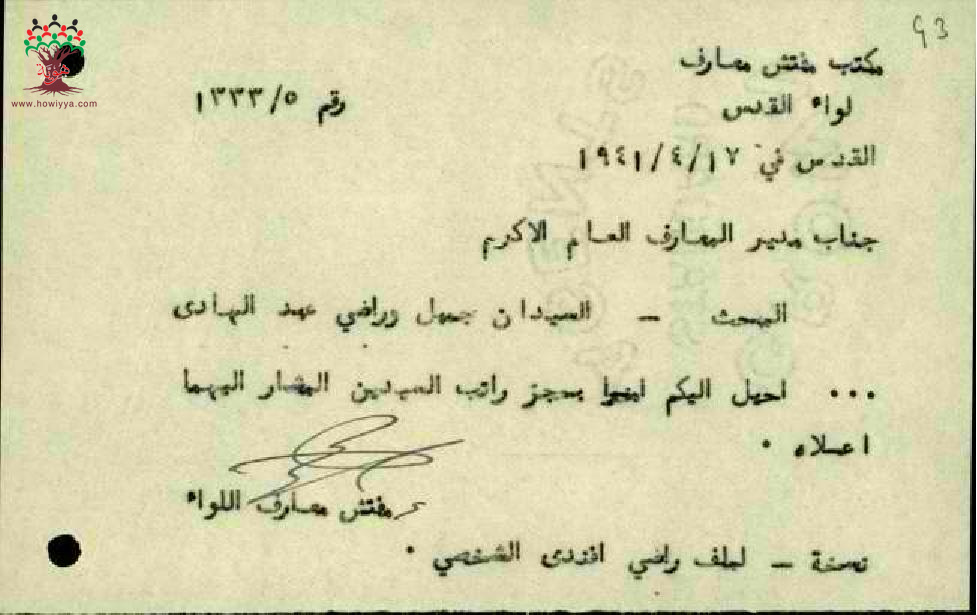 93
هوية
www.howiyya.com
مكتب مفتش معارف
لواء القدس
رقم ١٣٣٣/٥
القدس في ١٩٤١/٤/١٧
جناب مدير المعارف العام الاكرم
البحث – السيدان جميل وراضي عبد الهادى
... احيل اليكم امرا بحجز راتب السيدين المشار اليهما
اعلاه .
مفتش معارف اللواء
نسخة – لملف راضي افندى الشخصي .